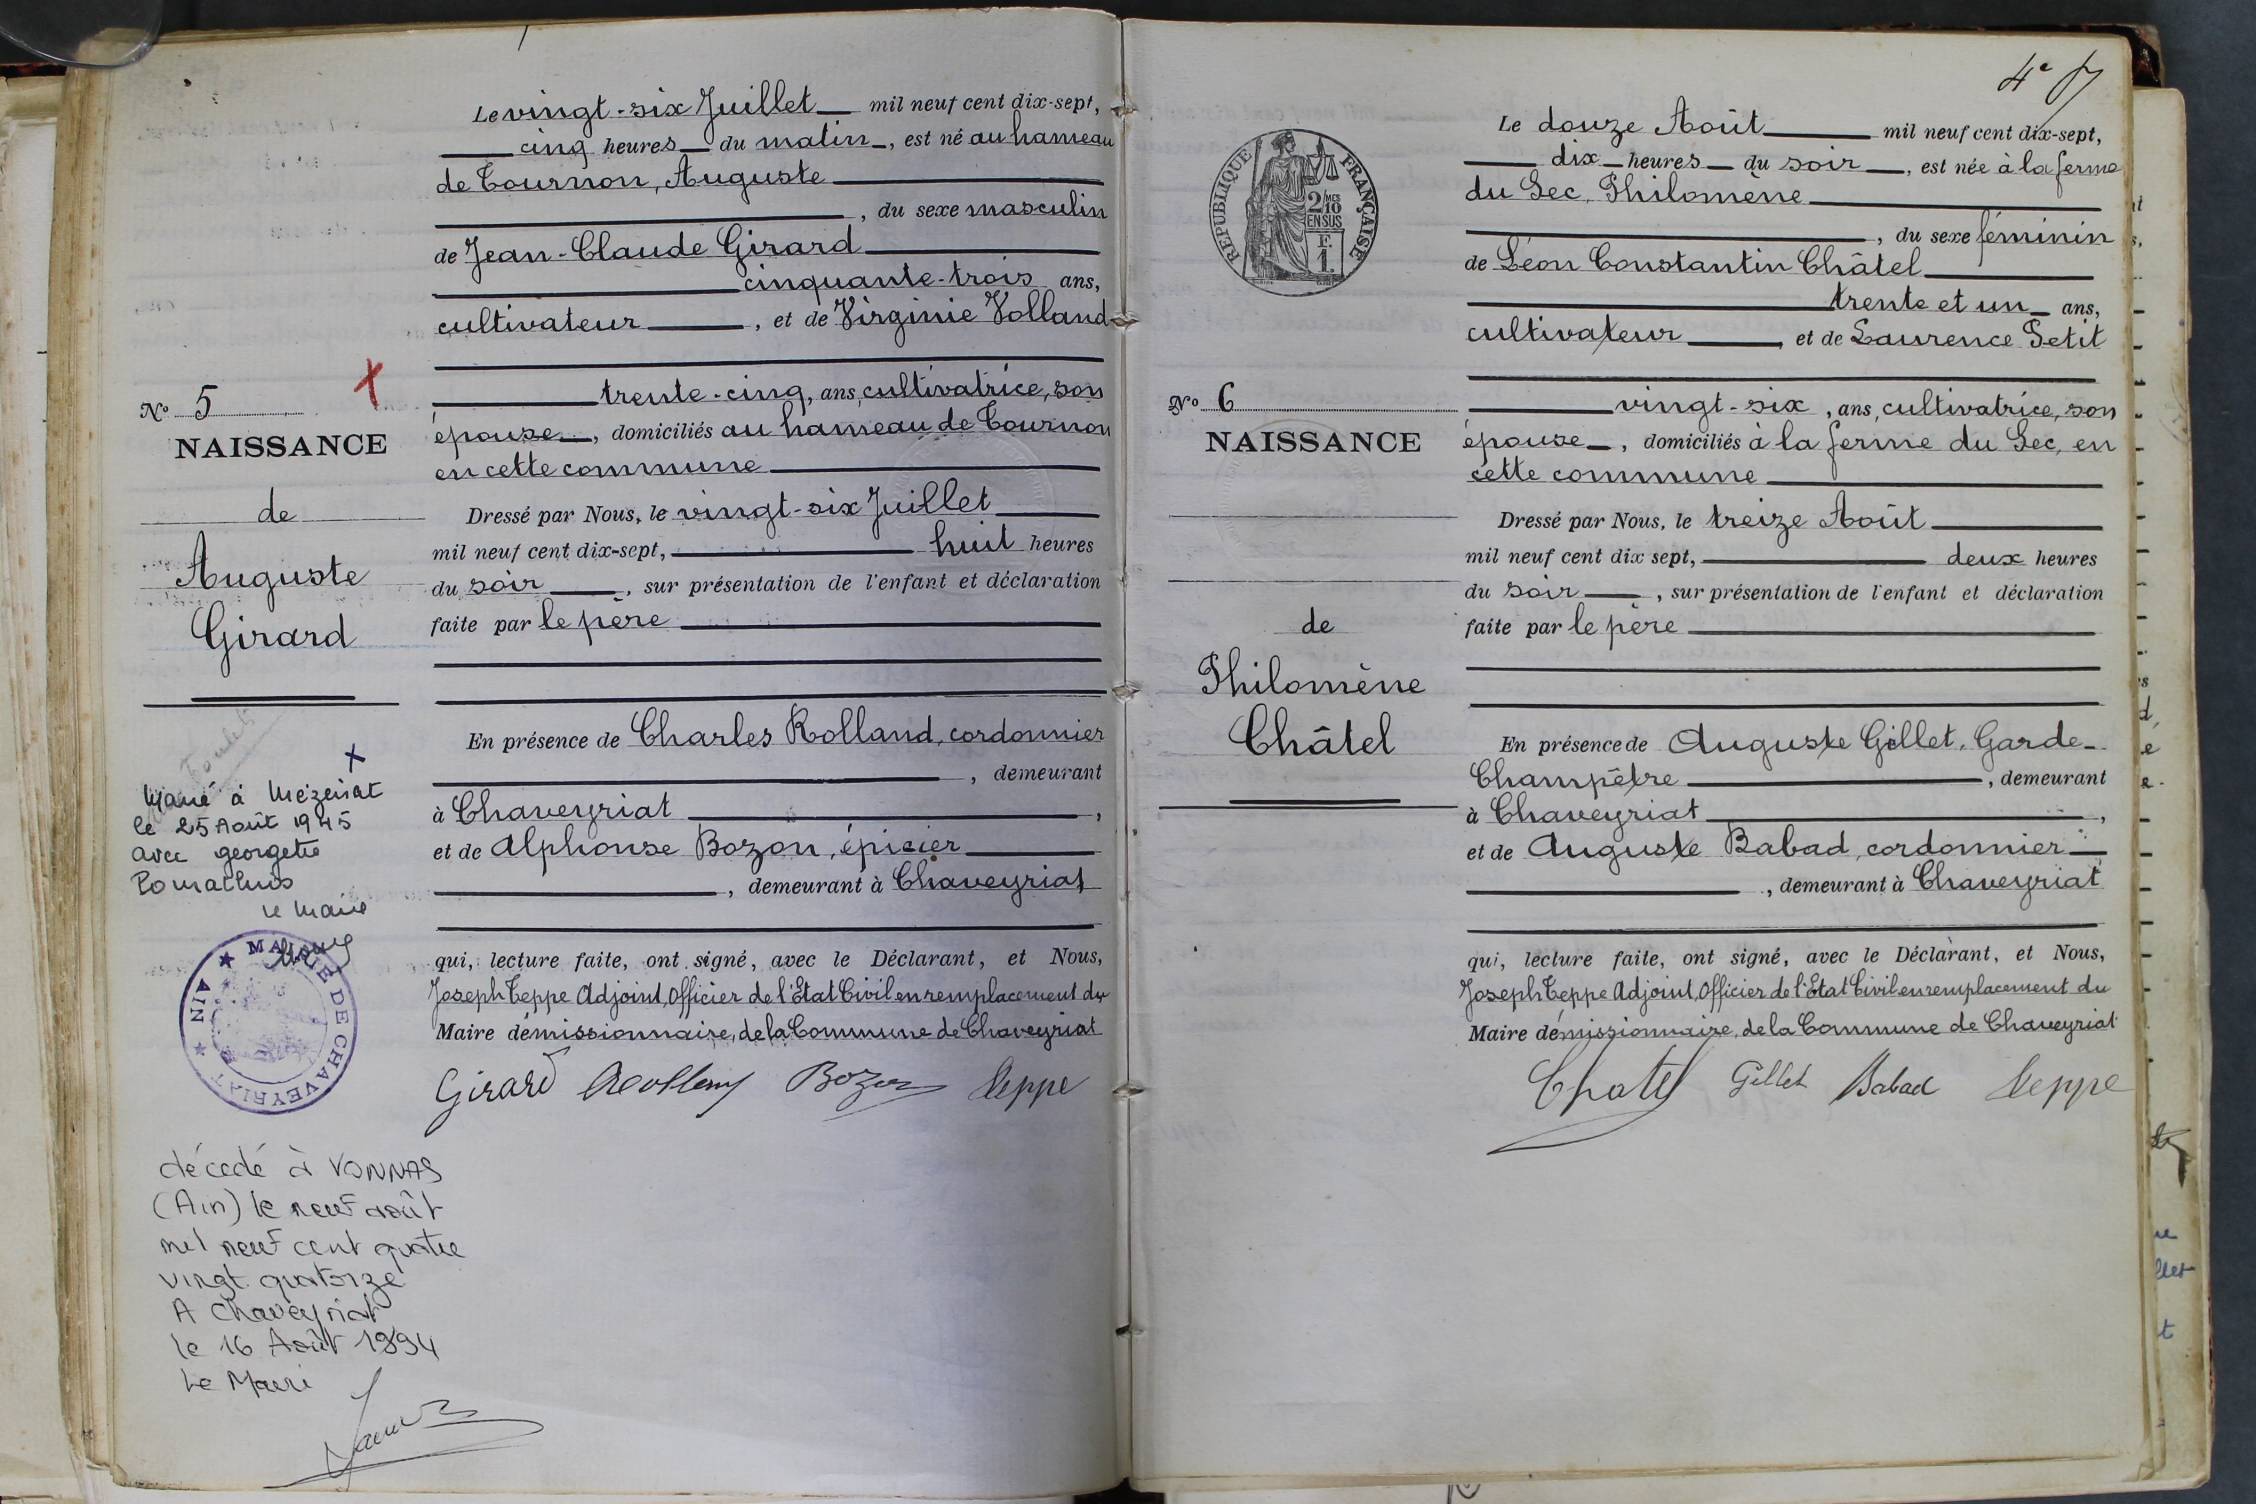 Le vingt-six Juillet mil neuf cent dix-sept,
cinq heures du matin, est né au hameau
de Tournon, Auguste
, du sexe masculin
de Jean-Claude Girard
cinquante-trois ans,
cultivateur, et de Virginie Volland
trente-cinq, ans, cultivatrice, son
épouse, domiciliés au hameau de Tournon
en cette commune
Dressé par Nous, le vingt-six Juillet
mil neuf cent dix-sept, huit heures
du soir, sur présentation de l'enfant et déclaration
faite par le père
En présence de Charles Rolland, cordonnier
, demeurant
à Chaveyriat,
et de Alphonse Bozon, épicier
, demeurant à Chaveyriat
qui, lecture faite, ont signé, avec le Déclarant, et Nous,
Joseph Teppe Adjoint, Officier de l'Etat Civil en remplacement du
Maire démissionnaire, de la Commune de Chaveyriat
Girard Rolland Bozon Teppe
No 5
NAISSANCE
de
Auguste
Girard
Marié à Mézériat
le 25 Août 1945
avec georgette
le Maire
MAIRIE DE CHAVEYRIAT
AIN
décédé à VONNAS
(Ain) le neuf août
mil neuf cent quatre
vingt quatorze
A Chaveyriat
le 16 Août 1994
Le Maire
4e f
REPUBLIQUE FRANÇAISE
2/10
EN SUS
F.
1.
Le douze Août mil neuf cent dix-sept,
dix heures du soir, est née à la ferme
du Sec, Philomène
, du sexe féminin
de Léon Constantin Châtel
trente et un ans,
cultivateur et de Laurence Petit
vingt-six, ans, cultivatrice, son
épouse, domiciliés à la ferme du Sec, en
cette commune
Dressé par Nous, le treize Août
mil neuf cent dix sept, deux heures
du soir, sur présentation de l'enfant et déclaration
faite par le père
En présence de Auguste Gillet, Garde-
Champêtre, demeurant
à Chaveyriat,
et de Auguste Babad, cordonnier
, demeurant à Chaveyriat
qui, lecture faite, ont signé, avec le Déclarant, et Nous,
Joseph Teppe Adjoint, Officier de l'Etat Civil en remplacement du
Maire démissionnaire, de la Commune de Chaveyriat
Chatel Gillet Babad Teppe
No 6
NAISSANCE
de
Philomène
Châtel